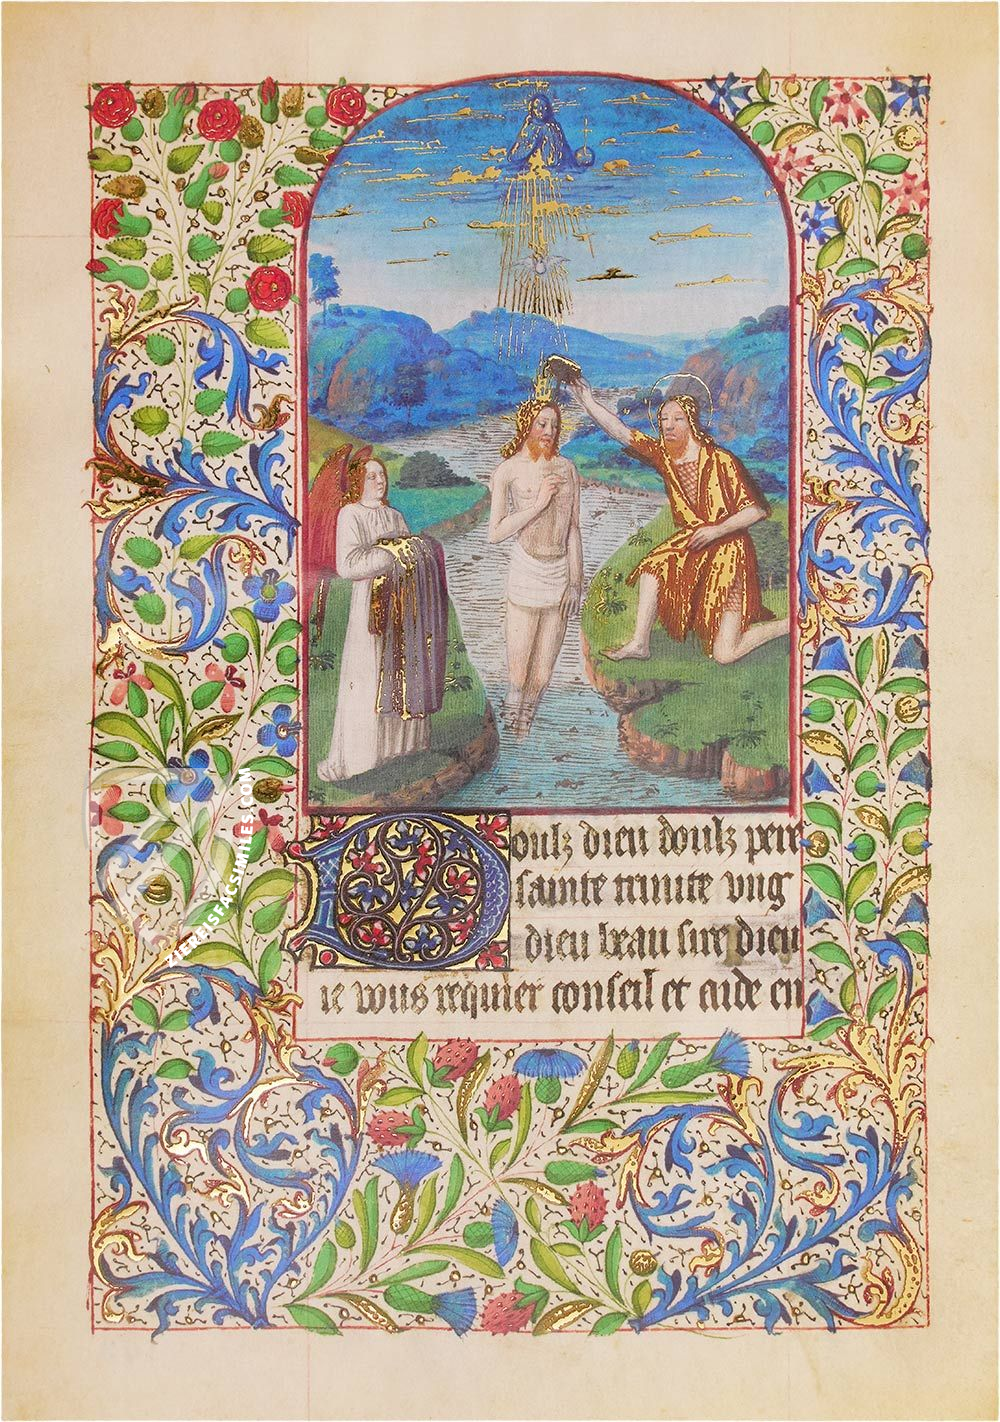 Doulz dieu doulz pere
sainte trinite vng
dieu beau sire dieu
ie vous requier conseil et aide en
ZIEREISFACSIMILES.COM